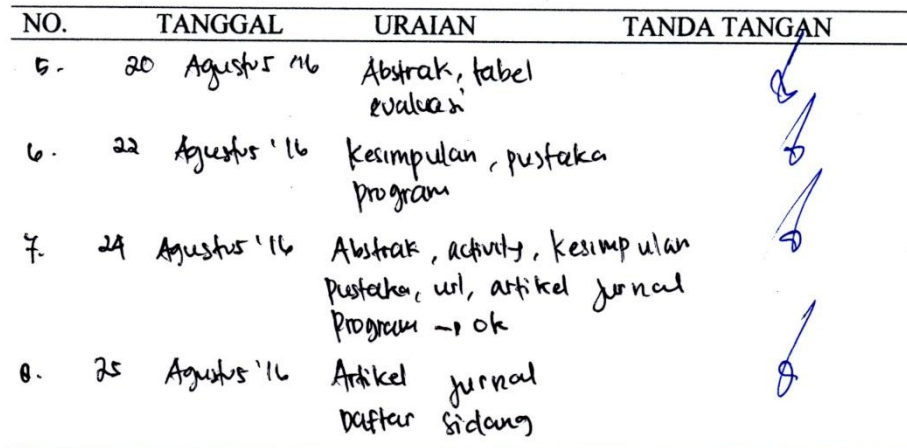 NO. TANGGAL URAIAN TANDA TANGAN
5. 20 Agustus '16 Abstrak, tabel
evaluasi
6. 22 Agustus '16 Kesimpulan, pustaka
program
7. 24 Agustus '16 Abstrak, activity, kesimpulan
pustaka, url, artikel jurnal
Program → ok
8. 25 Agustus '16 Artikel jurnal
Daftar sidang